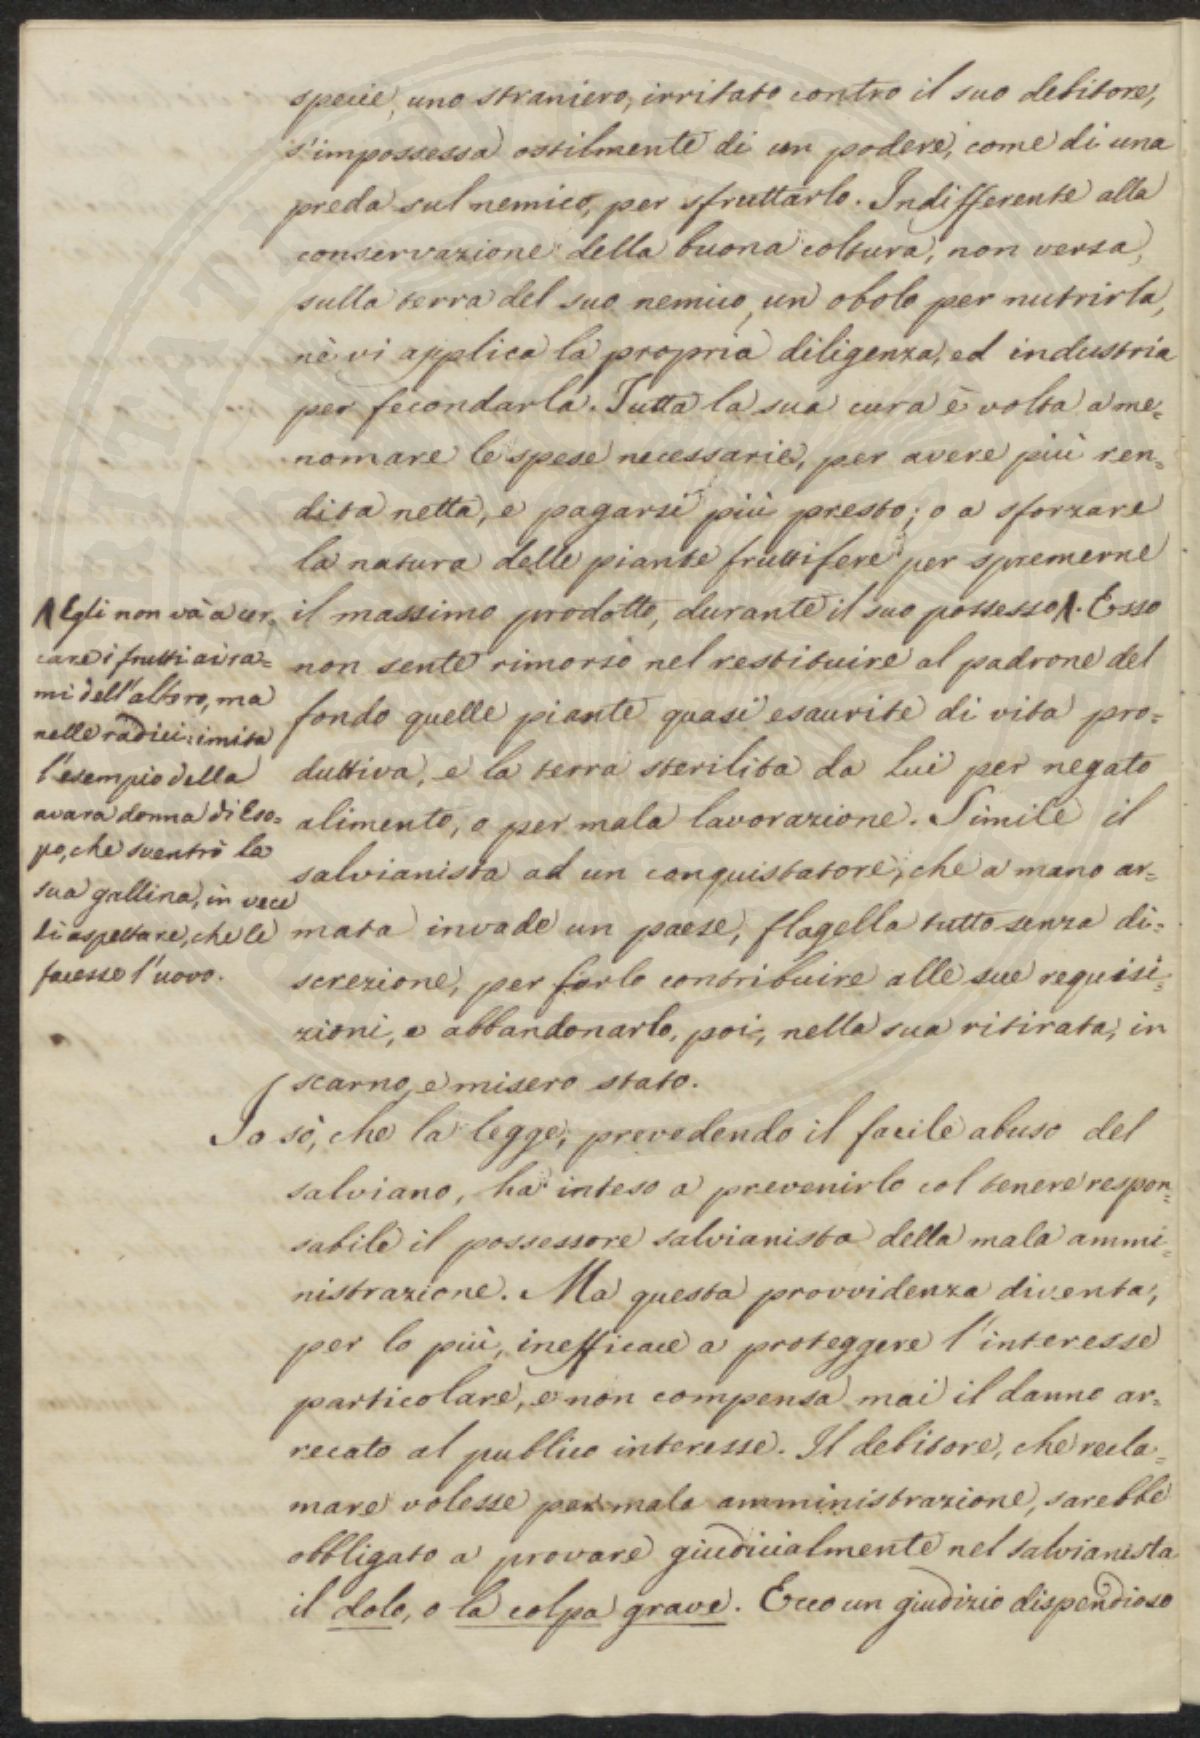 specie, uno straniero, irritato contro il suo debitore,
s'impossessa ostilmente di un podere, come di una
preda sul nemico, per sfruttarlo. Indifferente alla
conservazione della buona coltura, non versa,
sulla terra del suo nemico, un obolo per nutrirla,
nè vi applica la propria diligenza, ed industria
per fecondarla. Tutta la sua cura è volta a me=
nomare le spese necessarie, per avere più ren=
dita netta, e pagarsi più presto; o a sforzare
la natura delle piante fruttifere per spremerne
il massimo prodotto, durante il suo possesso /\. Esso
non sente rimorso nel restituire al padrone del
fondo quelle piante quasi esaurite di vita pro=
duttiva, e la terra sterilita da lui per negato
alimento, o per mala lavorazione. Simile il
salvianista ad un conquistatore, che a mano ar=
mata invade un paese, flagella tutto senza di=
screzione, per farlo contribuire alle sue requisi=
zioni, e abbandonarlo, poi, nella sua ritirata, in
scarno, e misero stato.
/\ Egli non và a cer=
care i frutti ai ra=
mi dell'albero, ma
nelle radici: imita
l'esempio della
avara donna di Eso=
po, che sventrò la
sua gallina, in vece
di aspettare, che le
facesse l'uovo.
Io sò, che la legge, prevedendo il facile abuso del
salviano, ha inteso a prevenirlo col tenere respon=
sabile il possessore salvianista della mala ammi=
nistrazione. Ma questa provvidenza diventa,
per lo più, inefficace a proteggere l'interesse
particolare, e non compensa mai il danno ar=
recato al publico interesse. Il debitore, che recla=
mare volesse per mala amministrazione, sarebbe
obbligato a provare giudicialmente nel salvianista
il dolo, o la colpa grave. Ecco un giudizio dispendioso